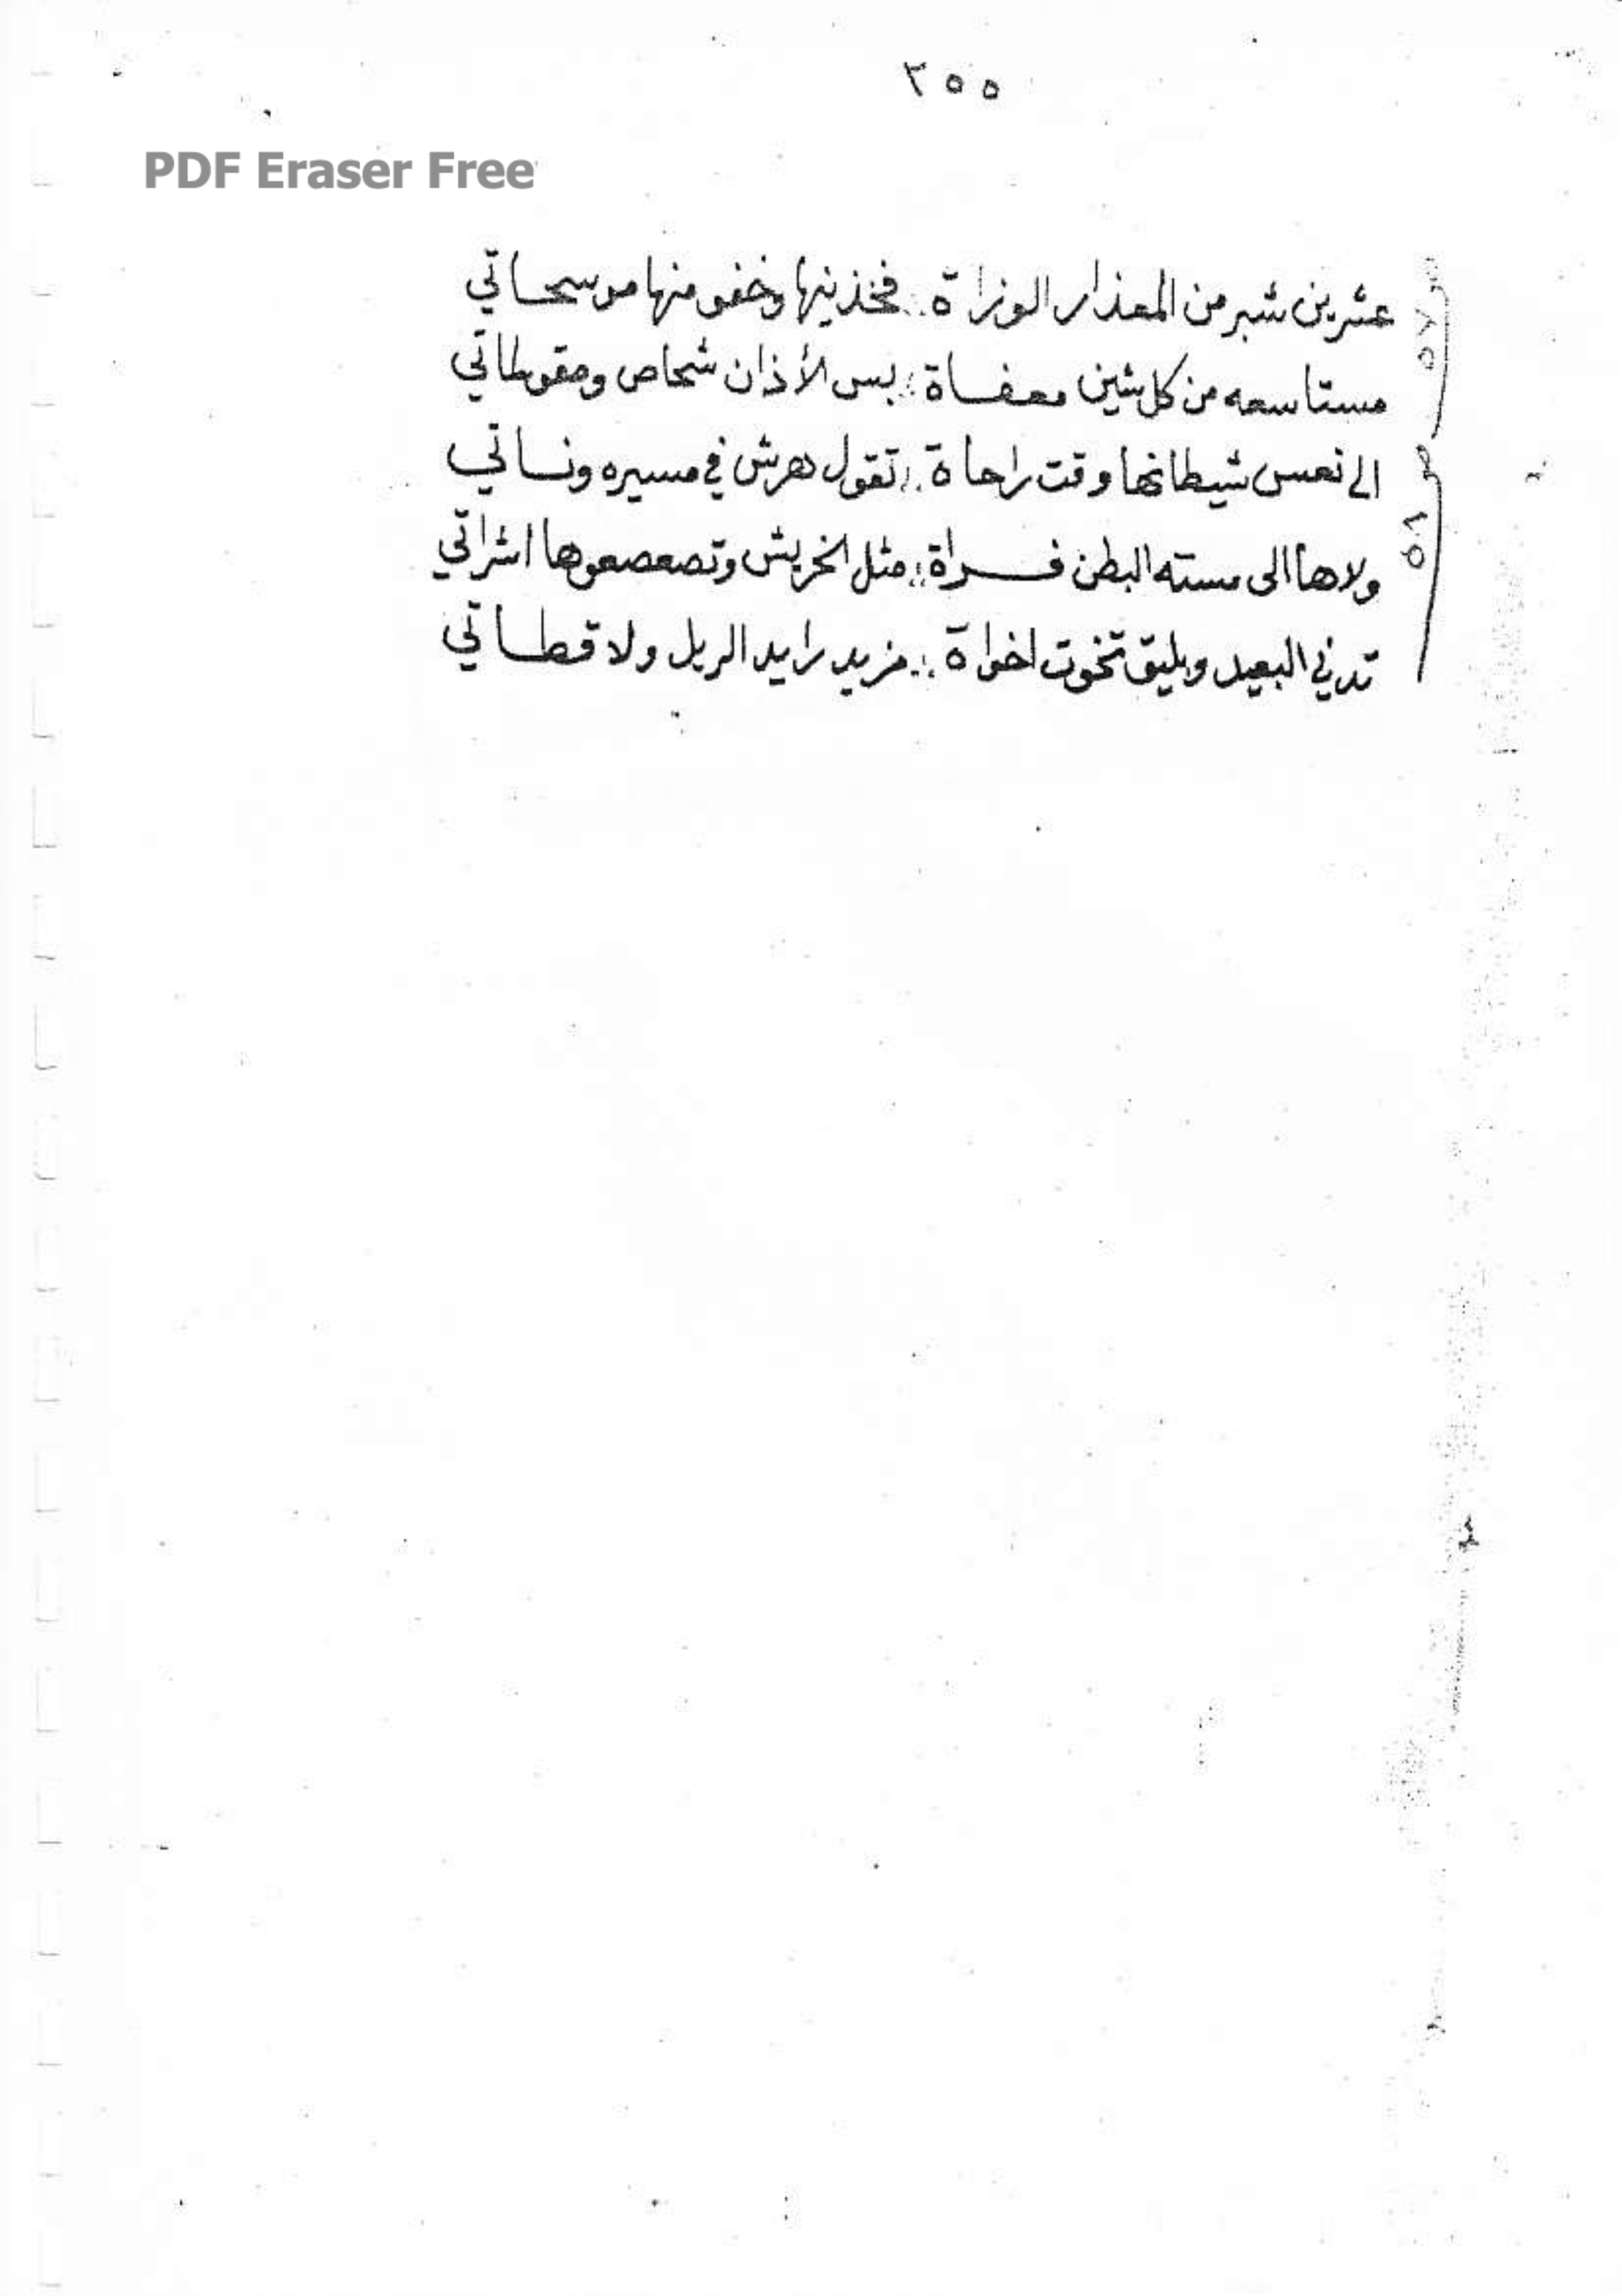 ٣٥٥
PDF Eraser Free
عشرين شبر من المعذار الوزراة .. فخذينها وخفو منها موسحاتي
مستاسعه من كل شين معفاة .. بس الأذان شخاص ومقوطاتي
الى نعس شيطانها وقت راحاة .. تقول دهرش في مسيره ونساتي
ولاها الى مسته البطن فراة .. مثل الخريش وتصعصعوها اشراتي
تدني البعيد ويليق تخوت اخواة .. مزيد رايد الربل ولا قطاتي
ص ٥٧
ص ٥٨